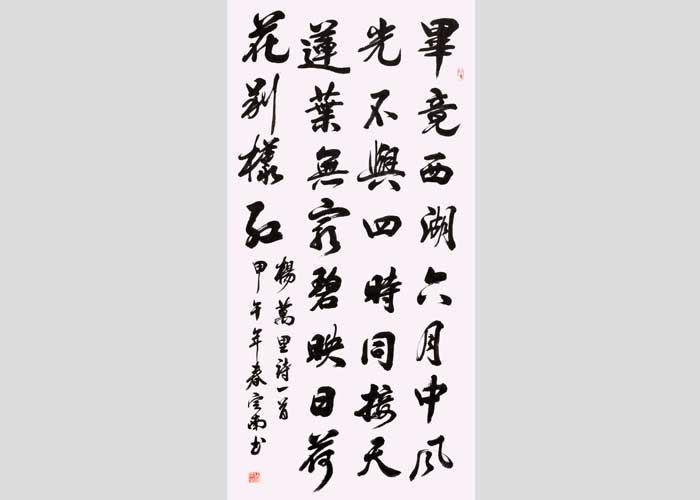 畢竟西湖六月中風
光不與四時同接天
蓮葉無窮碧映日荷
花別樣紅
楊萬里詩一首
甲午年春雨书